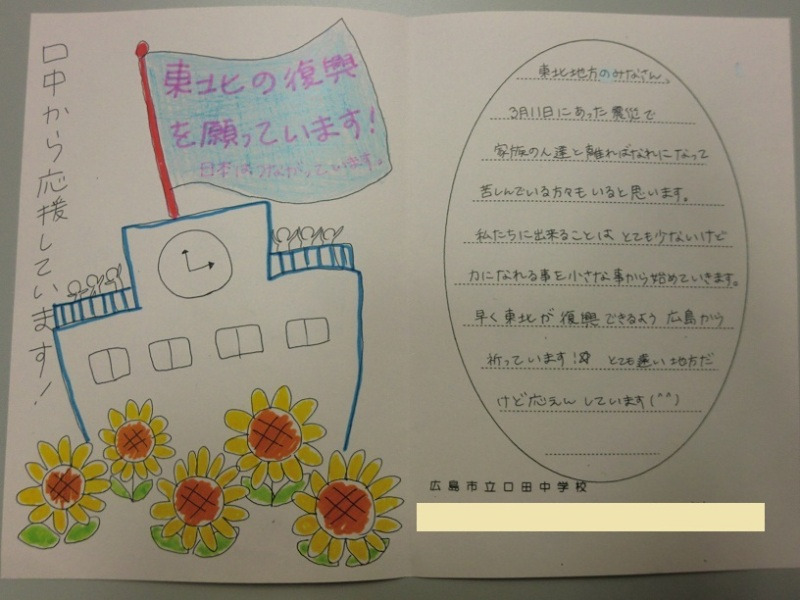 口中から応援しています!
東北の復興
を願っています!
日本はつながっています。
東北地方のみなさん、
3月11日にあった震災で
家族の人達と離ればなれになって
苦しんでいる方々もいると思います。
私たちに出来ることは とても少ないけど
力になれる事を小さな事から始めていきます。
早く東北が 復興できるよう 広島から
祈っています!☆ とても遠い地方だ
けど応えんしています(^^)
広島市立口田中学校